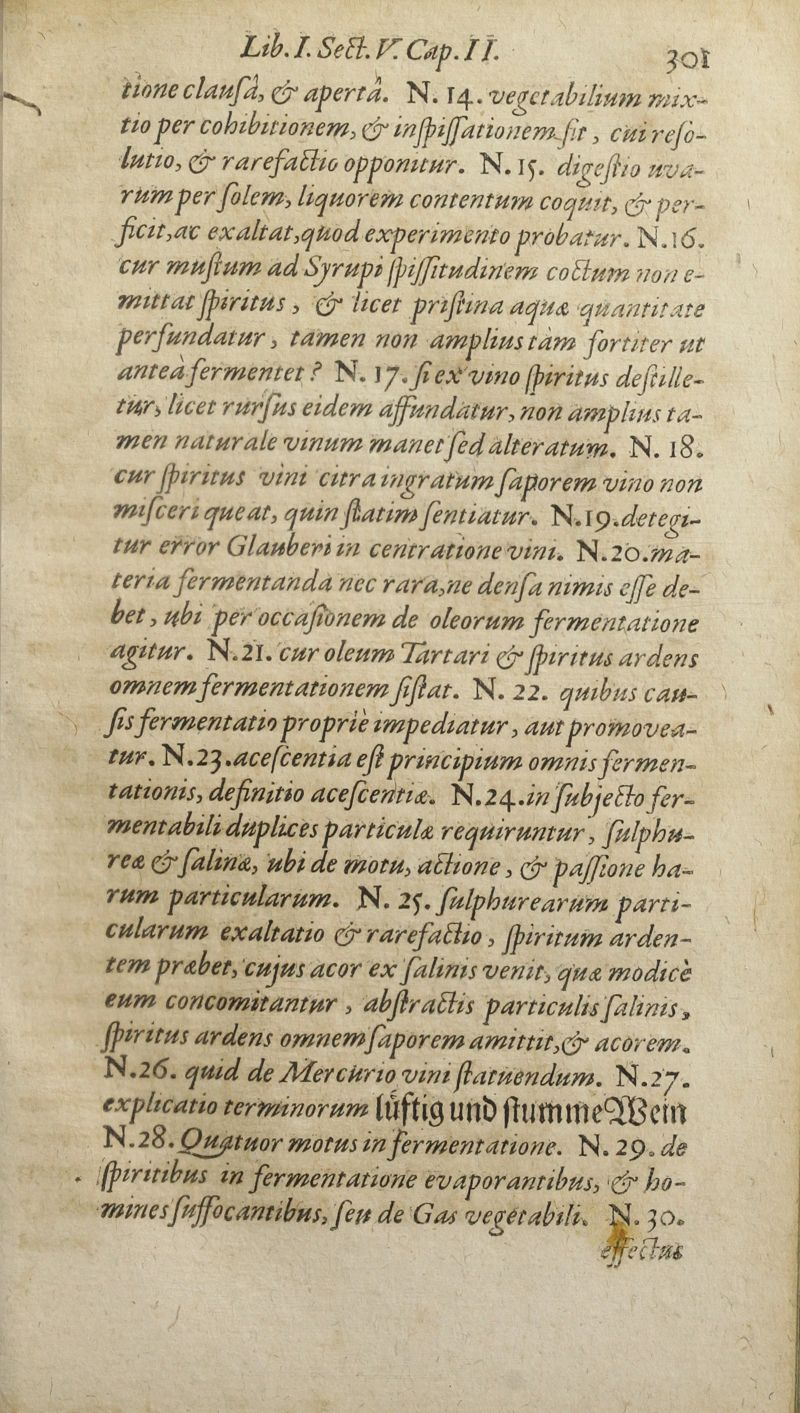 Lib. I. Sect. V. Cap. II. 301
tione clausâ, & apertâ. N. 14. vegetabilium mix-
tio per cohibitionem, & inspissationem fit, cui reso-
lutio, & rarefactio opponitur. N. 15. digestio uva-
rum per solem, liquorem contentum coquit, & per-
ficit, ac exaltat, quod experimento probatur. N. 16.
cur mustum ad Syrupi spissitudinem coctum non e-
mittat spiritus, & licet pristina aquæ quantitate
perfundatur, tamen non amplius tàm fortiter ut
anteà fermentet? N. 17. si ex vino spiritus destille-
tur, licet rursus eidem affundatur, non amplius ta-
men naturale vinum manet sed alteratum. N. 18.
cur spiritus vini citra ingratum saporem vino non
misceri queat, quin statim sentiatur. N. 19. detegi-
tur error Glauberi in centratione vini. N. 20. ma-
teria fermentanda nec rara, ne densa nimis esse de-
bet, ubi per occasionem de oleorum fermentatione
agitur. N. 21. cur oleum Tartari & spiritus ardens
omnem fermentationem sistat. N. 22. quibus cau-
sis fermentatio propriè impediatur, aut promovea-
tur. N. 23. acescentia est principium omnis fermen-
tationis, definitio acescentiæ. N. 24. in subjecto fer-
mentabili duplices particulæ requiruntur, sulphu-
reæ & salinæ, ubi de motu, actione, & passione ha-
rum particularum. N. 25. sulphurearum parti-
cularum exaltatio & rarefactio, spiritum arden-
tem præbet, cujus acor ex salinis venit, quæ modicè
eum concomitantur, abstractis particulis salinis,
spiritus ardens omnem saporem amittit, & acorem.
N. 26. quid de Mercurio vini statuendum. N. 27.
explicatio terminorum lüftig und stumme Wein
N. 28. Quatuor motus in fermentatione. N. 29. de
spiritibus in fermentatione evaporantibus, & ho-
mines suffocantibus, seu de Gas vegetabili. N. 30.
effectus